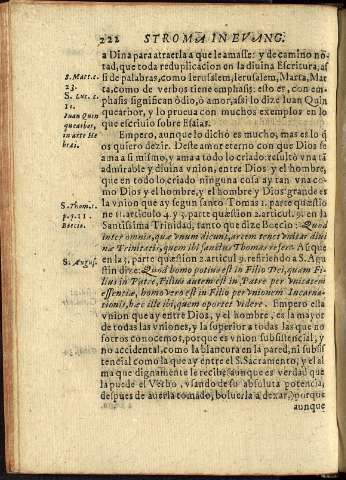 222 STROMA IN EVANG.
a Dina para atraerla a que le amasse: y de camino no-
tad, que toda reduplicacion en la diuina Escritura, as
si de palabras, como Ierusalem, Ierusalem, Marta, Mar
ta, como de verbos tiene emphasis: esto es, con em-
phasis significan òdio, ò amor, assi lo dize Iuan Quin
quearbor, y lo prueua con muchos exemplos en lo
que escriuio sobre Esaias.
S. Matt. c.
23.
S. Luc. c.
Iuan Quin
quearbor,
in arte He
brai.
Empero, aunque lo dicho es mucho, mas es lo q̃
os quiero dezir. Deste amor eterno con que Dios se
ama a si mismo, y ama a todo lo criado: resultò vna tã
admirable y diuina vnion, entre Dios y el hombre,
que en todo lo criado ninguna cosa ay tan vna co-
mo Dios y el hombre, y el hombre y Dios: grande es
la vnion que ay segun santo Tomas 1. parte quæstio
ne 11. articulo 4. y 3. parte quæstion 2. articul. 9. en la
Santissima Trinidad, tanto que dize Boecio: Quod
inter omnia, quæ vnum dicunt, arcem tenet vnitas diui
næ Trinitatis, quem ibi sanctus Thomas refert. A si que
en la 3. parte quæstion 2. articul 9. refiriendo a S. Agu
stin dize: Quod homo potius est in Filio Dei, quam Fi-
lius in Patre, Filius autem est in Patre per vnitatem
essentiæ, homo vero est in Filio per vnionem Incarna-
tionis, hæc ille ibi, quem oportet videre. Empero esta
vnion que ay entre Dios, y el hombre, es la mayor
de todas las vniones, y la superior a todas las que no
sotros conocemos, porque es vnion subsistencial, y
no accidental, como la blancura en la pared, ni subsis
tencial como la que ay entre el S. Sacramento, y el al
ma que dignamente le recibe, aunque es verdad que
la puede el Verbo, vsando de su absoluta potencia,
despues de auerla tomado, boluerla a dexar, porque
aunque
S. Thom. 1.
p. q. 11.
Boecio.
S. Augus.